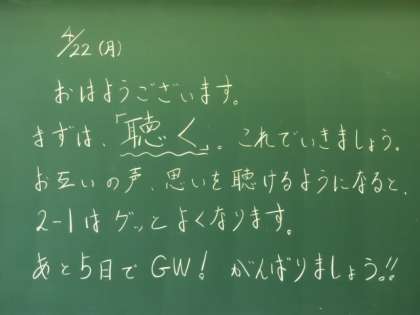 4/22(月)
おはようございます。
まずは、「聴く」。これでいきましょう。
お互いの声、思いを聴けるようになると、
2-1はグッとよくなります。
あと5日でGW! がんばりましょう!!